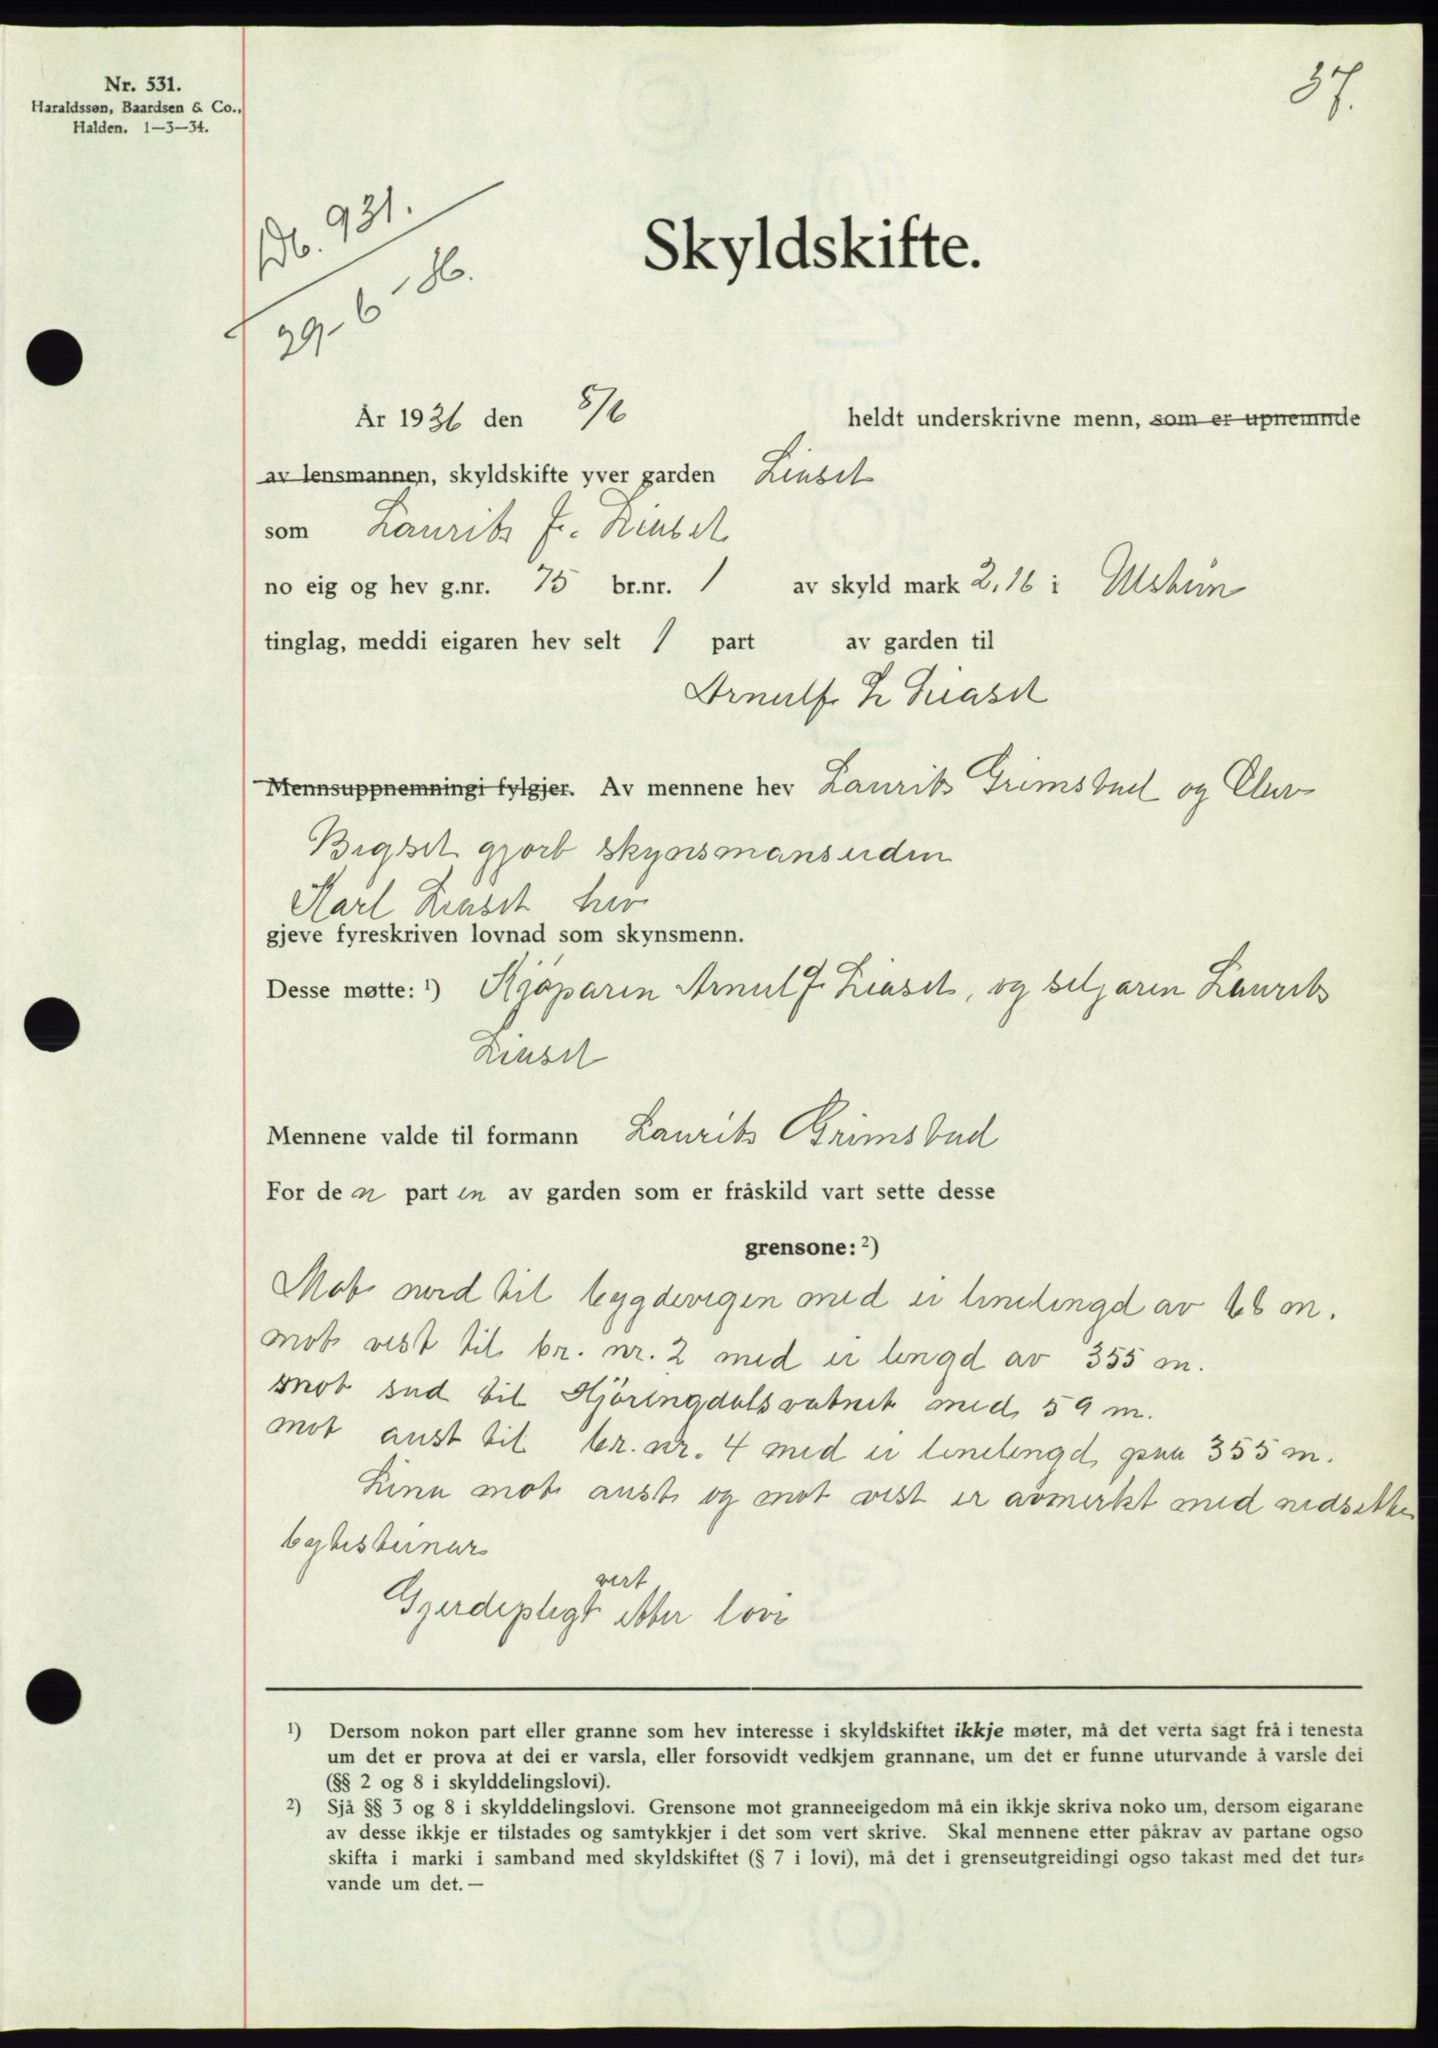 Nr. 531.
Haraldssøn, Baardsen & Co.,
Halden. 1—3—34.
37.
Db. 931.
29-6-36.
Skyldskifte.
År 1936 den 5/6 heldt underskrivne menn, som er upnemnde
av lensmannen, skyldskifte yver garden Liaset
som Laurits J. Liaset
no eig og hev g.nr. 75 br.nr. 1 av skyld mark 2,16 i Ulstein
tinglag, meddi eigaren hev selt 1 part av garden til
Arnulf L Liaset
Mennsuppnemningi fylgjer. Av mennene hev Laurits Grimstad og Olav
Bigset gjort skynsmanseiden
Karl Liaset hev
gjeve fyreskriven lovnad som skynsmenn.
Desse møtte: ¹) Kjøparen Arnulf Liaset, og seljaren Laurits
Liaset
Mennene valde til formann Laurits Grimstad
For den parten av garden som er fråskild vart sette desse
grensone: ²)
Mot nord til bygdevegen med ei linelengd av 66 m.
mot vest til br. nr. 2 med ei lengd av 355 m.
mot sud til Hjöringdalsvatnet med 59 m.
mot aust til br. nr. 4 med ei linelengd paa 355 m.
Lina mot aust og mot vest er avmerkt med nedsette
bytesteinar
Gjerdepligt vert etter lovi
¹) Dersom nokon part eller granne som hev interesse i skyldskiftet ikkje møter, må det verta sagt frå i tenesta
um det er prova at dei er varsla, eller forsovidt vedkjem grannane, um det er funne uturvande å varsle dei
(§§ 2 og 8 i skylddelingslovi).
²) Sjå §§ 3 og 8 i skylddelingslovi. Grensone mot granneeigedom må ein ikkje skriva noko um, dersom eigarane
av desse ikkje er tilstades og samtykkjer i det som vert skrive. Skal mennene etter påkrav av partane ogso
skifta i marki i samband med skyldskiftet (§ 7 i lovi), må det i grenseutgreidingi ogso takast med det tur-
vande um det. —